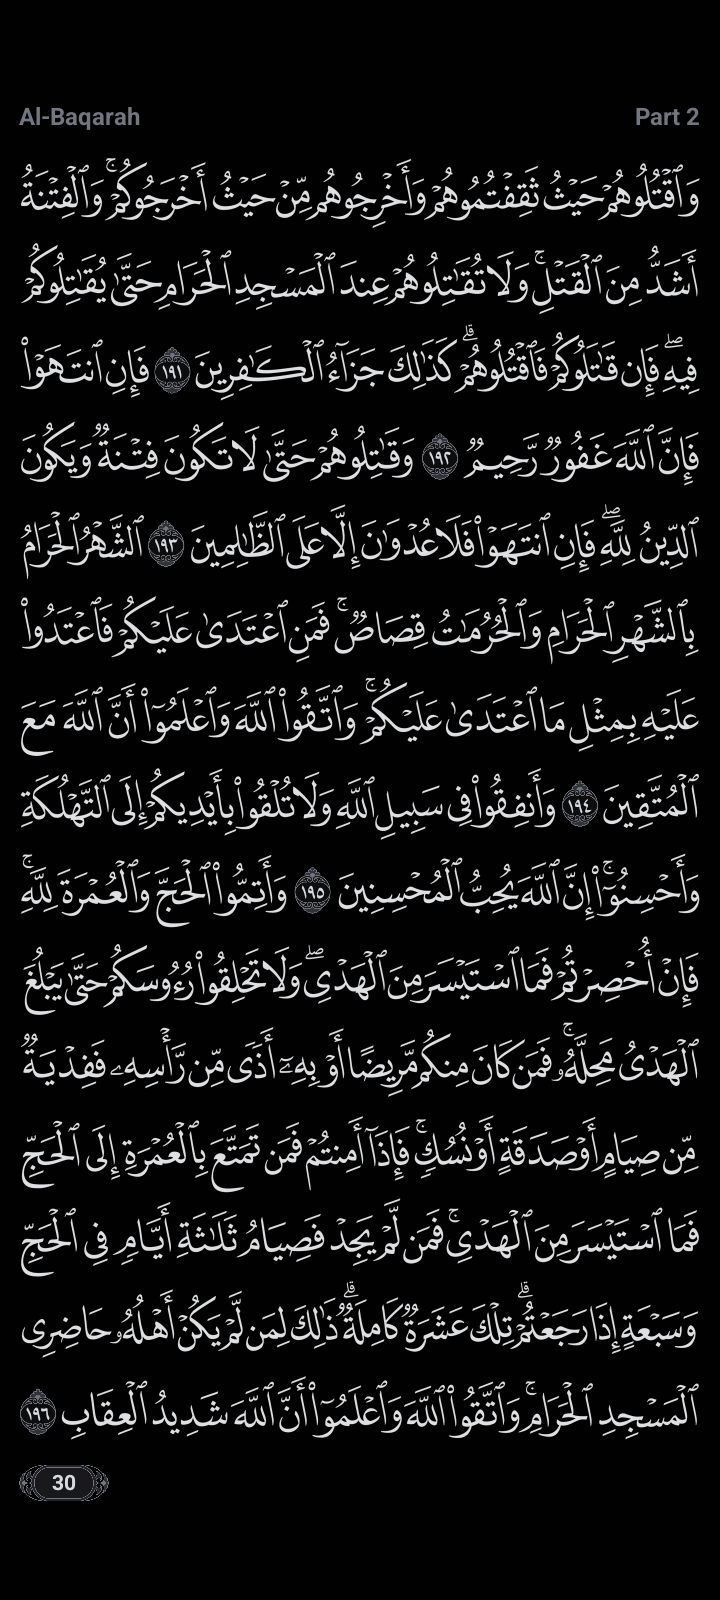 Al-Baqarah Part 2
وَٱقۡتُلُوهُمۡ حَيۡثُ ثَقِفۡتُمُوهُمۡ وَأَخۡرِجُوهُم مِّنۡ حَيۡثُ أَخۡرَجُوكُمۡۚ وَٱلۡفِتۡنَةُ
أَشَدُّ مِنَ ٱلۡقَتۡلِۚ وَلَا تُقَٰتِلُوهُمۡ عِندَ ٱلۡمَسۡجِدِ ٱلۡحَرَامِ حَتَّىٰ يُقَٰتِلُوكُمۡ
فِيهِۖ فَإِن قَٰتَلُوكُمۡ فَٱقۡتُلُوهُمۡۗ كَذَٰلِكَ جَزَآءُ ٱلۡكَٰفِرِينَ ١٩١ فَإِنِ ٱنتَهَوۡاْ
فَإِنَّ ٱللَّهَ غَفُورٞ رَّحِيمٞ ١٩٢ وَقَٰتِلُوهُمۡ حَتَّىٰ لَا تَكُونَ فِتۡنَةٞ وَيَكُونَ
ٱلدِّينُ لِلَّهِۖ فَإِنِ ٱنتَهَوۡاْ فَلَا عُدۡوَٰنَ إِلَّا عَلَى ٱلظَّٰلِمِينَ ١٩٣ ٱلشَّهۡرُ ٱلۡحَرَامُ
بِٱلشَّهۡرِ ٱلۡحَرَامِ وَٱلۡحُرُمَٰتُ قِصَاصٞۚ فَمَنِ ٱعۡتَدَىٰ عَلَيۡكُمۡ فَٱعۡتَدُواْ
عَلَيۡهِ بِمِثۡلِ مَا ٱعۡتَدَىٰ عَلَيۡكُمۡۚ وَٱتَّقُواْ ٱللَّهَ وَٱعۡلَمُوٓاْ أَنَّ ٱللَّهَ مَعَ
ٱلۡمُتَّقِينَ ١٩٤ وَأَنفِقُواْ فِي سَبِيلِ ٱللَّهِ وَلَا تُلۡقُواْ بِأَيۡدِيكُمۡ إِلَى ٱلتَّهۡلُكَةِ
وَأَحۡسِنُوٓاْۚ إِنَّ ٱللَّهَ يُحِبُّ ٱلۡمُحۡسِنِينَ ١٩٥ وَأَتِمُّواْ ٱلۡحَجَّ وَٱلۡعُمۡرَةَ لِلَّهِۚ
فَإِنۡ أُحۡصِرۡتُمۡ فَمَا ٱسۡتَيۡسَرَ مِنَ ٱلۡهَدۡيِۖ وَلَا تَحۡلِقُواْ رُءُوسَكُمۡ حَتَّىٰ يَبۡلُغَ
ٱلۡهَدۡيُ مَحِلَّهُۥۚ فَمَن كَانَ مِنكُم مَّرِيضًا أَوۡ بِهِۦٓ أَذٗى مِّن رَّأۡسِهِۦ فَفِدۡيَةٞ
مِّن صِيَامٍ أَوۡ صَدَقَةٍ أَوۡ نُسُكٖۚ فَإِذَآ أَمِنتُمۡ فَمَن تَمَتَّعَ بِٱلۡعُمۡرَةِ إِلَى ٱلۡحَجِّ
فَمَا ٱسۡتَيۡسَرَ مِنَ ٱلۡهَدۡيِۚ فَمَن لَّمۡ يَجِدۡ فَصِيَامُ ثَلَٰثَةِ أَيَّامٖ فِي ٱلۡحَجِّ
وَسَبۡعَةٍ إِذَا رَجَعۡتُمۡۗ تِلۡكَ عَشَرَةٞ كَامِلَةٞۗ ذَٰلِكَ لِمَن لَّمۡ يَكُنۡ أَهۡلُهُۥ حَاضِرِي
ٱلۡمَسۡجِدِ ٱلۡحَرَامِۚ وَٱتَّقُواْ ٱللَّهَ وَٱعۡلَمُوٓاْ أَنَّ ٱللَّهَ شَدِيدُ ٱلۡعِقَابِ ١٩٦
30